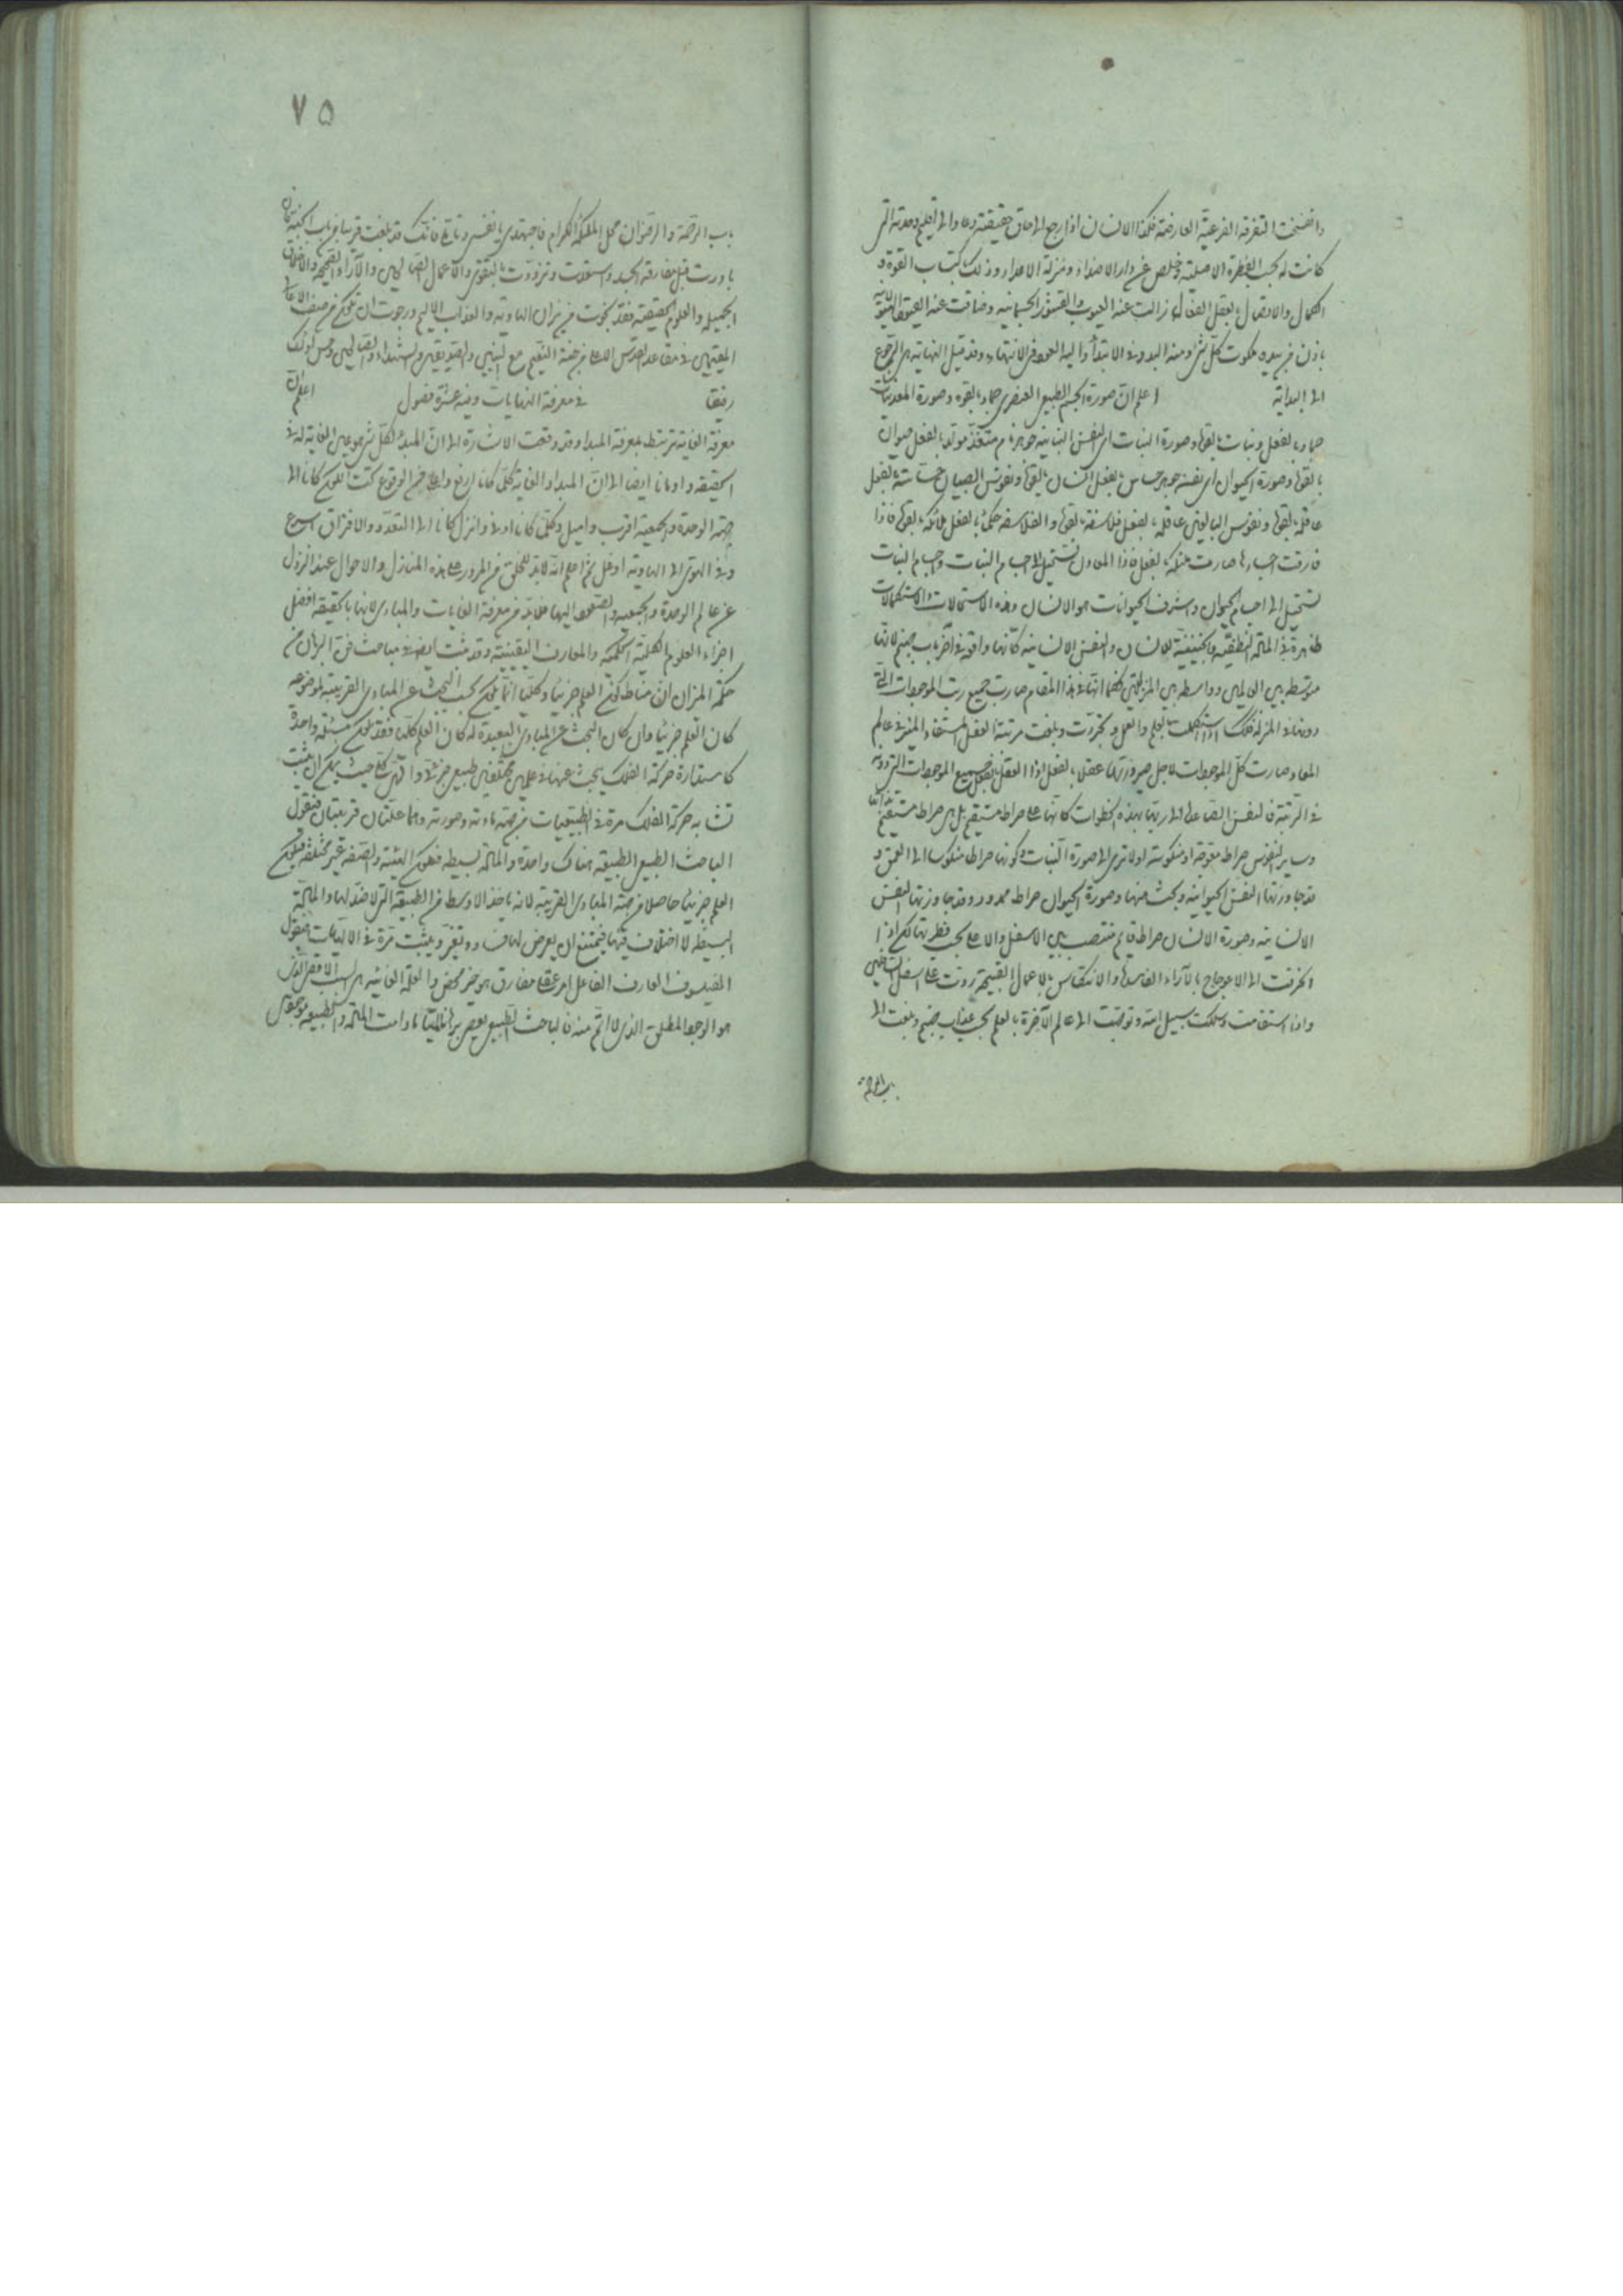 وانفسخت التفرقة الفرعية العارضة فكذا الانسان اذا رجع الى حاق حقيقته وعاد الى اقليم وحدته التي
كانت له بحسب الفطرة الاصلية وخلص عن دار الاضداد ومنزلة الاعداد وذلك باكتساب القوة و
الكمال والاتصال بالعقل الفعال زالت عنه العيوب والقشور الجسمانية وضاقت عنه
باذن من بيده ملكوت كل شئ ومنه البدو في الابتداء واليه العود في الانتهاء وقد قيل النهاية هي الرجوع
الى البداية اعلم ان صورة الجسم الطبيعي العنصري جماد بالقوة وصورة المعدنيات
جماد بالفعل ونبات بالقوة وصورة النبات اي النفس النباتية جوهر نام متغذ مولد بالفعل حيوان
بالقوة وصورة الحيوان اي نفسه جوهر حساس بالفعل انسان بالقوة ونفوس الصبيان حساسة بالفعل
عاقلة بالقوة ونفوس البالغين عاقلة بالفعل فلاسفة بالقوة والفلاسفة حكماء بالفعل ملائكة بالقوة فاذا
فارقت اجسادها صارت ملائكة بالفعل فاذا المعادن تستحيل الى اجسام النبات واجسام النبات
تستحيل الى اجسام الحيوان واشرف الحيوانات هو الانسان وهذه الاستحالات والاستكمالات
ظاهرة في المادة النطفية والجنينية للانسان والنفس الانسانية كانها واقعة في آخر باب جهنم لانها
متوسطة بين العالمين وواسطة بين المنزلتين فكما انها في هذا المقام صارت جميع رتب الموجودات التي
دونها في المنزلة فكذلك اذا استكملت بالعلم والعمل وتجردت وبلغت مرتبة العقل المستفاد المنير في عالم
المعاد صارت كل الموجودات لاجل صيرورتها عقلا بالفعل اذ العقل بالفعل جميع الموجودات التي دونه
في الرتبة فالنفس الصاعدة الى ربها بهذه الخطوات كانها على صراط مستقيم بل هي صراط مستقيم
وساير النفوس صراط معوجة او منكوسة اولا ترى الى صورة النبات كونها صراطا منكوسا الى العمق و
قد جاوزتها النفس الحيوانية ونجت منها وصورة الحيوان صراط ممدود وقد جاوزتها النفس
الانسانية وصورة الانسان صراط قايم منتصب بين الاسفل والاعلى بحسب فطرتها لكن اذا
انحرفت الى الاعوجاج بالآراء الفاسدة والانتكاس بالاعمال القبيحة ردت الى اسفل السافلين
واذا استقامت وسلكت سبيل الله وتوجهت الى عالم الآخرة بالعلم نجت عذاب جهنم وبلغت الى
باب الرحمة
٧٥
باب الرحمة والرضوان محل الملائكة الكرام فاجتهدي يا نفس وتأملي فانك قد بلغت قريبا من باب الجنة
بادرت قبل مفارقة الجسد واستعدت وتزودت بالتقوى والاعمال الصالحين والآراء الصحيحة والاخلاق
الجميلة والعلوم الحقيقية فقد نجوت من نيران الهاوية والعذاب الاليم ورجوت ان تكون من صنف
المقيمين في مقاعد القدس الاعلى من جنة النعيم مع النبيين والصديقين والشهداء والصالحين وحسن اولئك
رفيقا في معرفة النهايات وفيه عشرة فصول اعلم ان
معرفة الغاية مرتبطة بمعرفة المبدا وقد وقعت الاشارة الى ان المبدأ لكل شئ هو عين الغاية له في
الحقيقة واومانا ايضا الى ان المبدا والغاية كلما كانا ارفع واعلى من الوقوع تحت الكون كانا الى
جهة الوحدة والجمعية اقرب واميل وكلما كانا ادنى وانزل كانا الى التعدد والافتراق اسرع
وفي الهوي الى الهاوية اوغل ثم اعلم انه لابد للخلق من المرور على هذه المنازل والاحوال عند النزول
عن عالم الوحدة والجمعية والصعود اليها فلابد من معرفة الغايات والمبادي لانها بالحقيقة افضل
اجزاء العلوم الكلية الحكمية والمعارف اليقينية وقد ثبت ايضا في مباحث فن البرهان من
حكمة الميزان ان مناط كون العلم جزئيا وكليا انما يكون بحسب البحث عن المبادي القريبة لموضوعه
كان العلم جزئيا وان كان البحث عن المبادي البعيدة له كان العلم كليا فقد يكون مسئلة واحدة
كاستدارة حركة الفلك يبحث عنها في علمين مختلفين طبيعي جزئي والهي كلي حيث يمكن ان يثبت
تشابه حركة الفلك مرة في الطبيعيات من جهة مادته وصورته وهما علتان قريبتان فيقول
الباحث الطبيعي الطبيعة هناك واحدة والمادة بسيطة فتكون الهيئة والصنعة غير مختلفة فيكون
العلم جزئيا حاصلا من جهة المبادي القريبة لانه ياخذ الاوسط من الطبيعة التي لا ضد لها والمادة
البسيطة لا اختلاف فيها فيمتنع ان يعرض لها فساد وتغير ويثبت مرة في الالهيات فيقول
الفيلسوف العارف الفاعل امر عقلي مفارق هو خير محض والعلة الغائية هي السبب الاقصى الذي
هو الوجود المطلق الذي لا اتم منه فالباحث الطبيعي يعطي برهانا لميا ما دامت المادة والطبيعة موجودتين